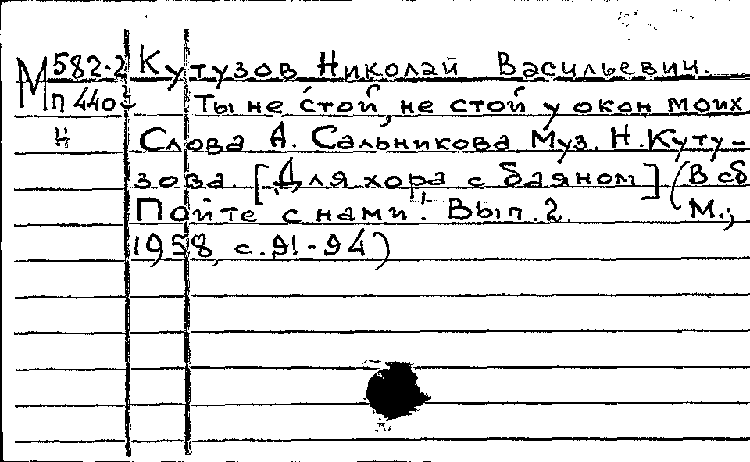 М 582-2 Кутузов Николай Васильевич.
П 440 Ты не стой, не стой у окон моих
Н Слова А. Сальникова. Муз. Н. Куту-
зова. [Для хора с баяном] (В сб
Пойте с нами! Вып. 2. М.,
1958, с. 91-94)